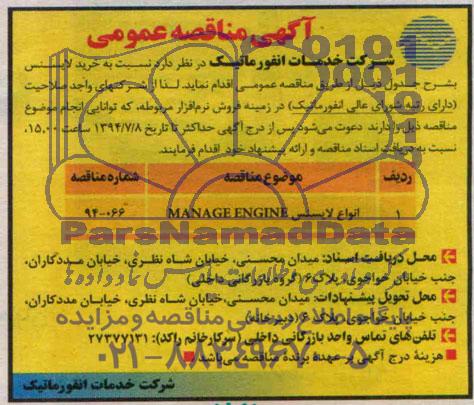 آگهی مناقصه عمومی
شرکت خدمات انفورماتیک در نظر دارد نسبت به خرید لایسنس
بشرح جدول ذیل از طریق مناقصه عمومی اقدام نماید. لذا از شرکتهای واجد صلاحیت
(دارای رتبه شورای عالی انفورماتیک) در زمینه فروش نرم‌افزار مربوطه، که توانایی انجام موضوع
مناقصه ذیل را دارند دعوت می‌شود پس از درج آگهی حداکثر تا تاریخ ۱۳۹۴/۷/۸ ساعت ۱۵،۰۰
نسبت به دریافت اسناد مناقصه و ارائه پیشنهاد خود اقدام فرمایند.
ردیف موضوع مناقصه شماره مناقصه
۱ انواع لایسنس MANAGE ENGINE ۹۴-۰۶۶
ParsNamadData
محل دریافت اسناد: میدان محسنی، خیابان شاه نظری، خیابان مددکاران،
جنب خیابان خواجوی، پلاک ۶ (گروه بازرگانی داخلی)
محل تحویل پیشنهادات: میدان محسنی، خیابان شاه نظری، خیابان مددکاران،
جنب خیابان خواجوی، پلاک ۶ (دبیرخانه)
پایگاه اطلاع رسانی مناقصه و مزایده
تلفن‌های تماس واحد بازرگانی داخلی (سرکارخانم راکد): ۲۷۳۷۷۱۳۱
هزینه درج آگهی بر عهده برنده مناقصه می‌باشد
۰۲۱-۸۸۳۴۹۶۷۰-۵
شرکت خدمات انفورماتیک